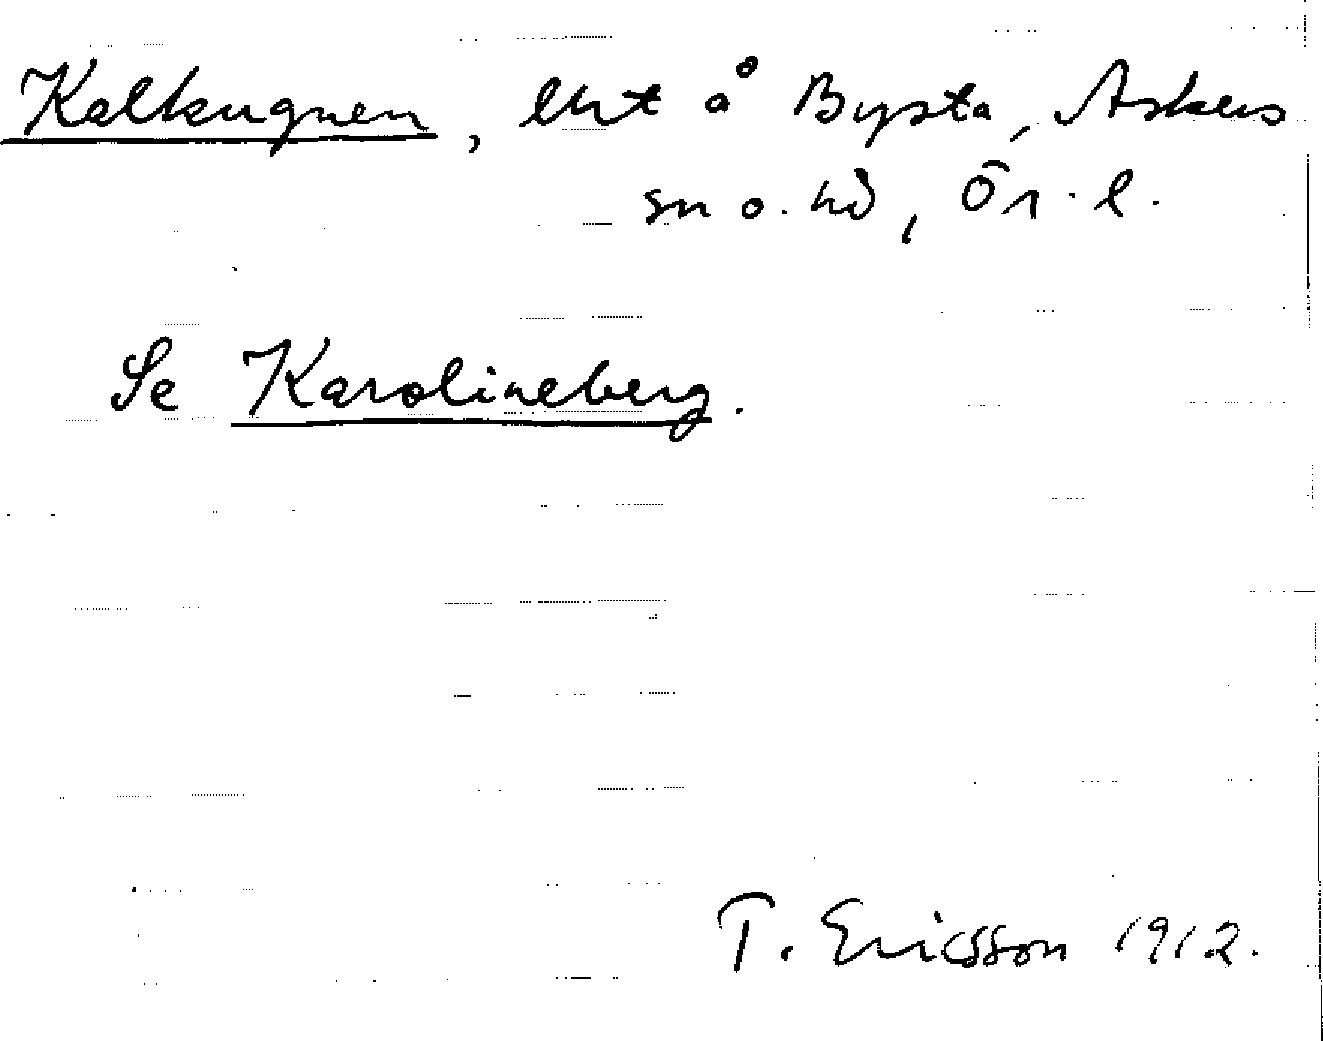 Kalkugnen, lht å Bysta, Askers
sn o. hd, Ör. l.
Se Karolineberg.
T. Ericsson 1912.